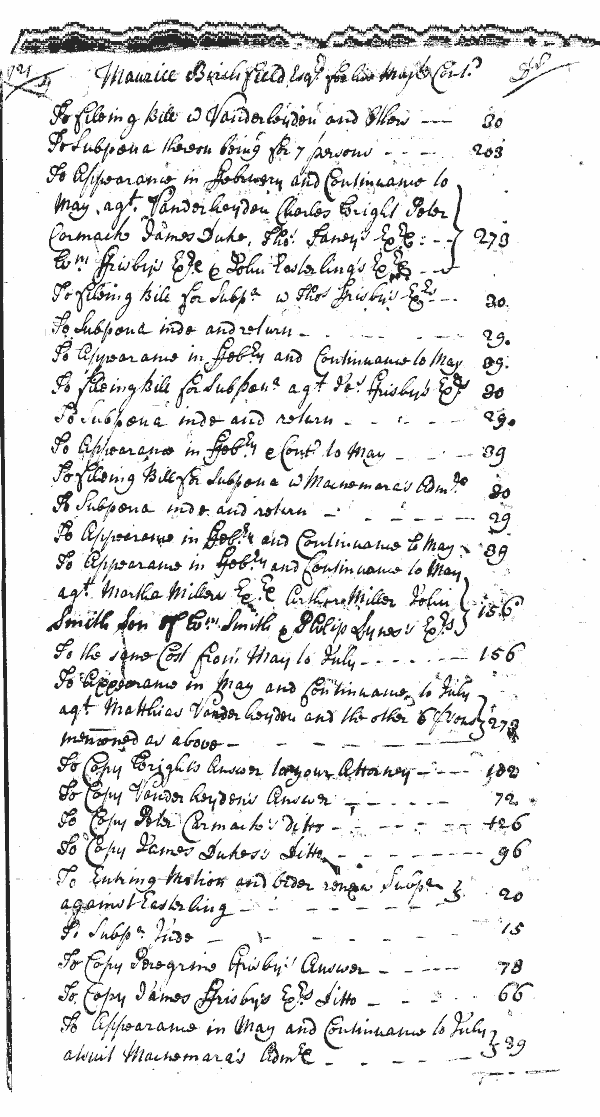 1721 Maurice Birchfield Esqr. for his Majts Cort. Dr
To fileing Bill v Vanderheyden and Others --- 30
To Subpœna thereon being for 7 persons --- 203
To Appearance in February and Continuance to
May, agt. Vanderheyden Charles Wright Peter
Cormack James Duke, Thos. Taney's Exrx: -- 273
Wm. Frisby's Exrx & John Easterling's Exrs --
To fileing Bill for Subpa. v Thos Frisby's Exrs -- 30
To Subpœna inde and return -- 29.
To Appearance in Febry and Continuance to May 39.
To fileing Bill for Subpœna agt Jas. Frisby's Exrs 30
To Subpœna inde and return -- 29.
To Appearance in Febry & Cont. to May -- 39
To fileing Bill for Subpœna v Macnemara's Admrx 30
To Subpœna inde and return -- 29
To Appearance in Febry and Continuance to May 39
To Appearance in Febry and Continuance to May
agt. Martha Millers Exrx Arthur Miller John
Smith Son of Wm. Smith & Philip Lynes's Exrs 156
To the same Cost from May to July ---- 156
To Appearance in May and Continuance to July
agt. Matthias Vanderheyden and the other 6 psons 273
mentioned as above --
To Copy Wrights Answer to your Attorney --- 102
To Copy Vanderheyden's Answer --- 72
To Copy Peter Cormack's ditto --- 126
To Copy James Dukes's Ditto --- 96
To Entring Motion and Order renew Subpa
against Easterling --- 20
To Subpa. Inde -- 15
To Copy Peregrine Frisby's Answer --- 78
To Copy James Frisby's Exrs Ditto -- 66
To Appearance in May and Continuance to July
Macnemara's Admrx --- 39